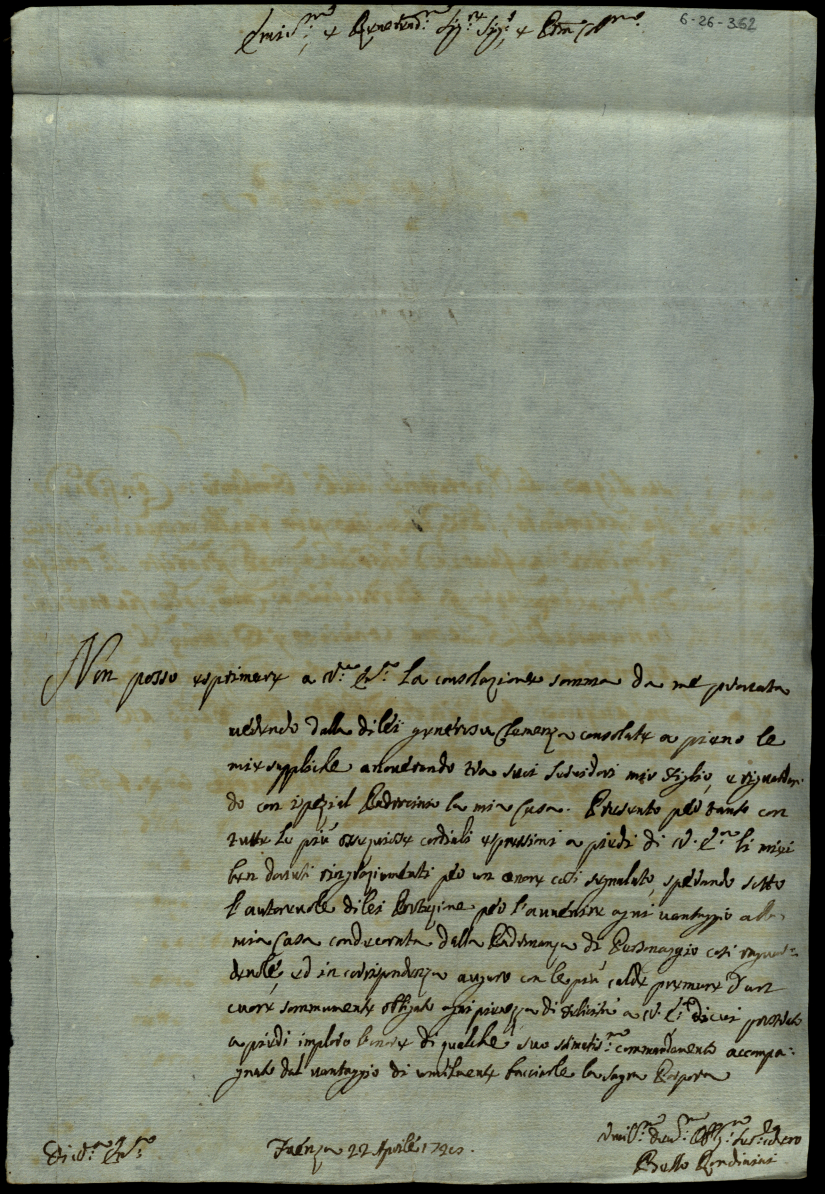 6-26-362
Em.mo e Reverend.mo Sig.re Sig.re e Pron Col.mo
Non posso esprimere a V.ra Em.za la consolazione somma da me provata
vedendo dalla di lei generosa Clemenza consolate a pieno le
mie suppliche annoverando tra suoi servidori mio Figlio, e riguardan-
do con ispezial Padrocinio la mia Casa. Presento per tanto con
tutte le più ossequiose cordiali espressioni a piedi di V. Em.za li miei
ben dovuti ringraziamenti per un onore così segnalato, sperando sotto
l'autorevole di lei Protezione per l'avvenire ogni vantaggio alla
mia Casa condecorata dalla Padronanza di Personaggio così raguar-
devole, ed in corrispondenza auguro con le più calde premure d'un
cuore sommamente obligato ogni pienezza di felicità a V. Em.za di cui prostrato
a piedi imploro l'onore di qualche suo stimatis.mo commandamento accompa-
gnato dal vantaggio di umilmente bacciarle la Sagra Porpora
Di V.ra Em.za
Faenza 22 Aprile
Umil.mo Dev.mo Obl.mo Ser.re
Rondinini